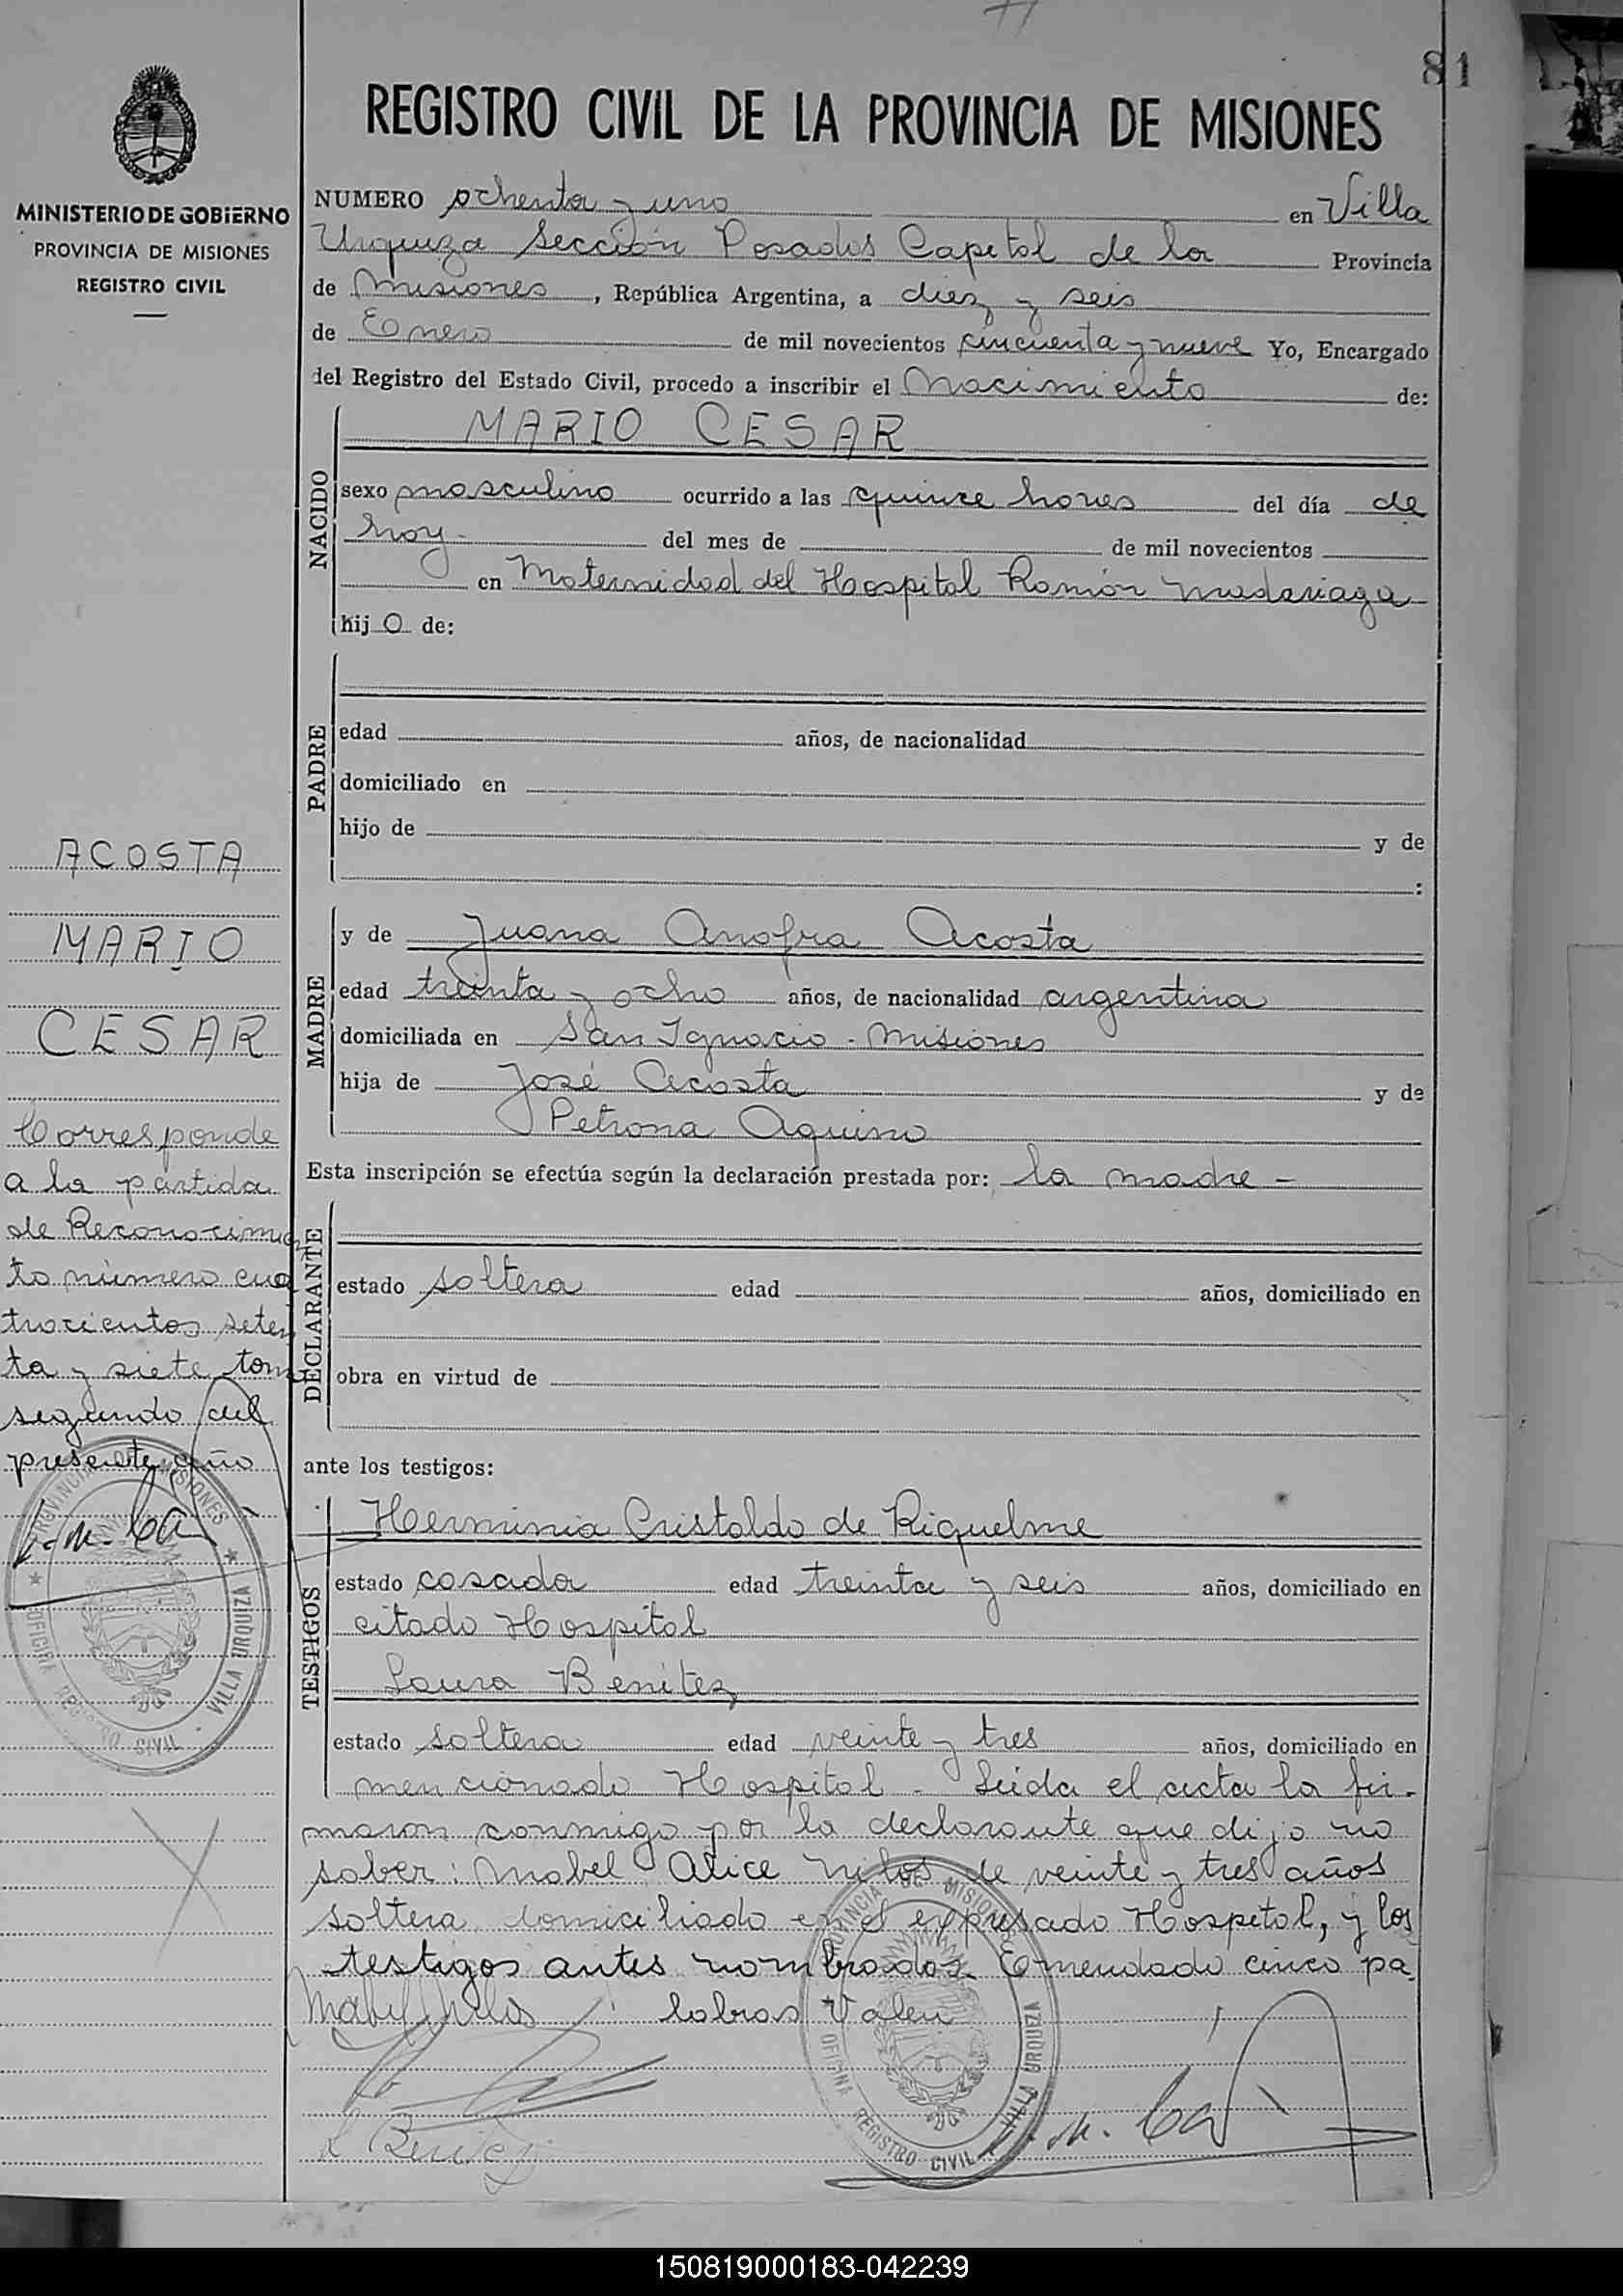 81
REGISTRO CIVIL DE LA PROVINCIA DE MISIONES
MINISTERIO DE GOBIERNO
PROVINCIA DE MISIONES
REGISTRO CIVIL
NUMERO ochenta y uno en Villa
Urquiza Sección Posadas Capital de la Provincia
de Misiones, República Argentina, a diez y seis
de Enero de mil novecientos cincuenta y nueve Yo, Encargado
del Registro del Estado Civil, procedo a inscribir el Nacimiento de:
NACIDO
MARIO CESAR
sexo masculino ocurrido a las quince horas del día de
hoy. del mes de de mil novecientos
en Maternidad del Hospital Ramón Madariaga
hijo de:
PADRE
edad años, de nacionalidad
domiciliado en
hijo de y de
:
MADRE
y de Juana Anofra Acosta
edad treinta y ocho años, de nacionalidad argentina
domiciliada en San Ignacio - Misiones
hija de José Acosta y de
Petrona Aquino
Esta inscripción se efectúa según la declaración prestada por: la madre -
DECLARANTE
estado soltera edad años, domiciliado en
obra en virtud de
ante los testigos:
TESTIGOS
Herminia Cristaldo de Riquelme
estado casada edad treinta y seis años, domiciliado en
citado Hospital
Laura Benitez
estado soltera edad veinte y tres años, domiciliado en
mencionado Hospital - Leida el acta la fir-
maron conmigo por la declarante que dijo no
saber: Mabel Alice Milos de veinte y tres años
soltera domiciliado en el expresado Hospital, y los
testigos antes nombrados. Emendado cinco pa
labras Valen
L Benitez
ACOSTA
MARIO
CESAR
Corresponde
a la partida
de Reconocimien
to número cua
trocientos seten
ta y siete tomo
segundo del
presente año
PROVINCIA DE MISIONES
OFICINA REGISTRO CIVIL - VILLA URQUIZA
PROVINCIA DE MISIONES
OFICINA REGISTRO CIVIL VILLA URQUIZA
150819000183-042239